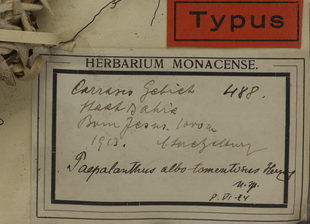 Typus
HERBARIUM MONACENSE.
Carrasco Gebiet 488.
Staat Bahia
Bom Jesus
1913. Luetzelburg
Paepalanthus albo-tomentosus Herzog
n. sp.